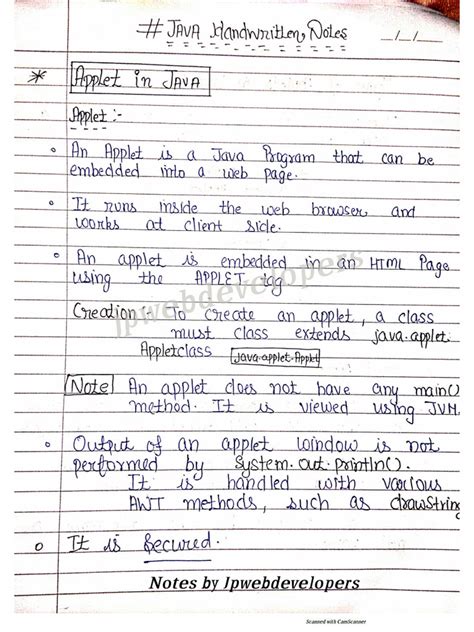 # JAVA Handwritten Notes _/_/__
* Applet in JAVA
Applet :-
An Applet is a Java Program that can be
embedded into a web page.
It runs inside the web browser and
works at client side.
An applet is embedded in an HTML Page
using the APPLET tag
Creation:- To create an applet, a class
must class extends java.applet.
Appletclass java.applet.Applet
Note An applet does not have any main()
method. It is viewed using JVM.
Output of an applet window is not
performed by System.out.println().
It is handled with various
AWT methods, such as drawString
It is Secured.
jpwebdevelopers
Notes by Jpwebdevelopers
Scanned with CamScanner